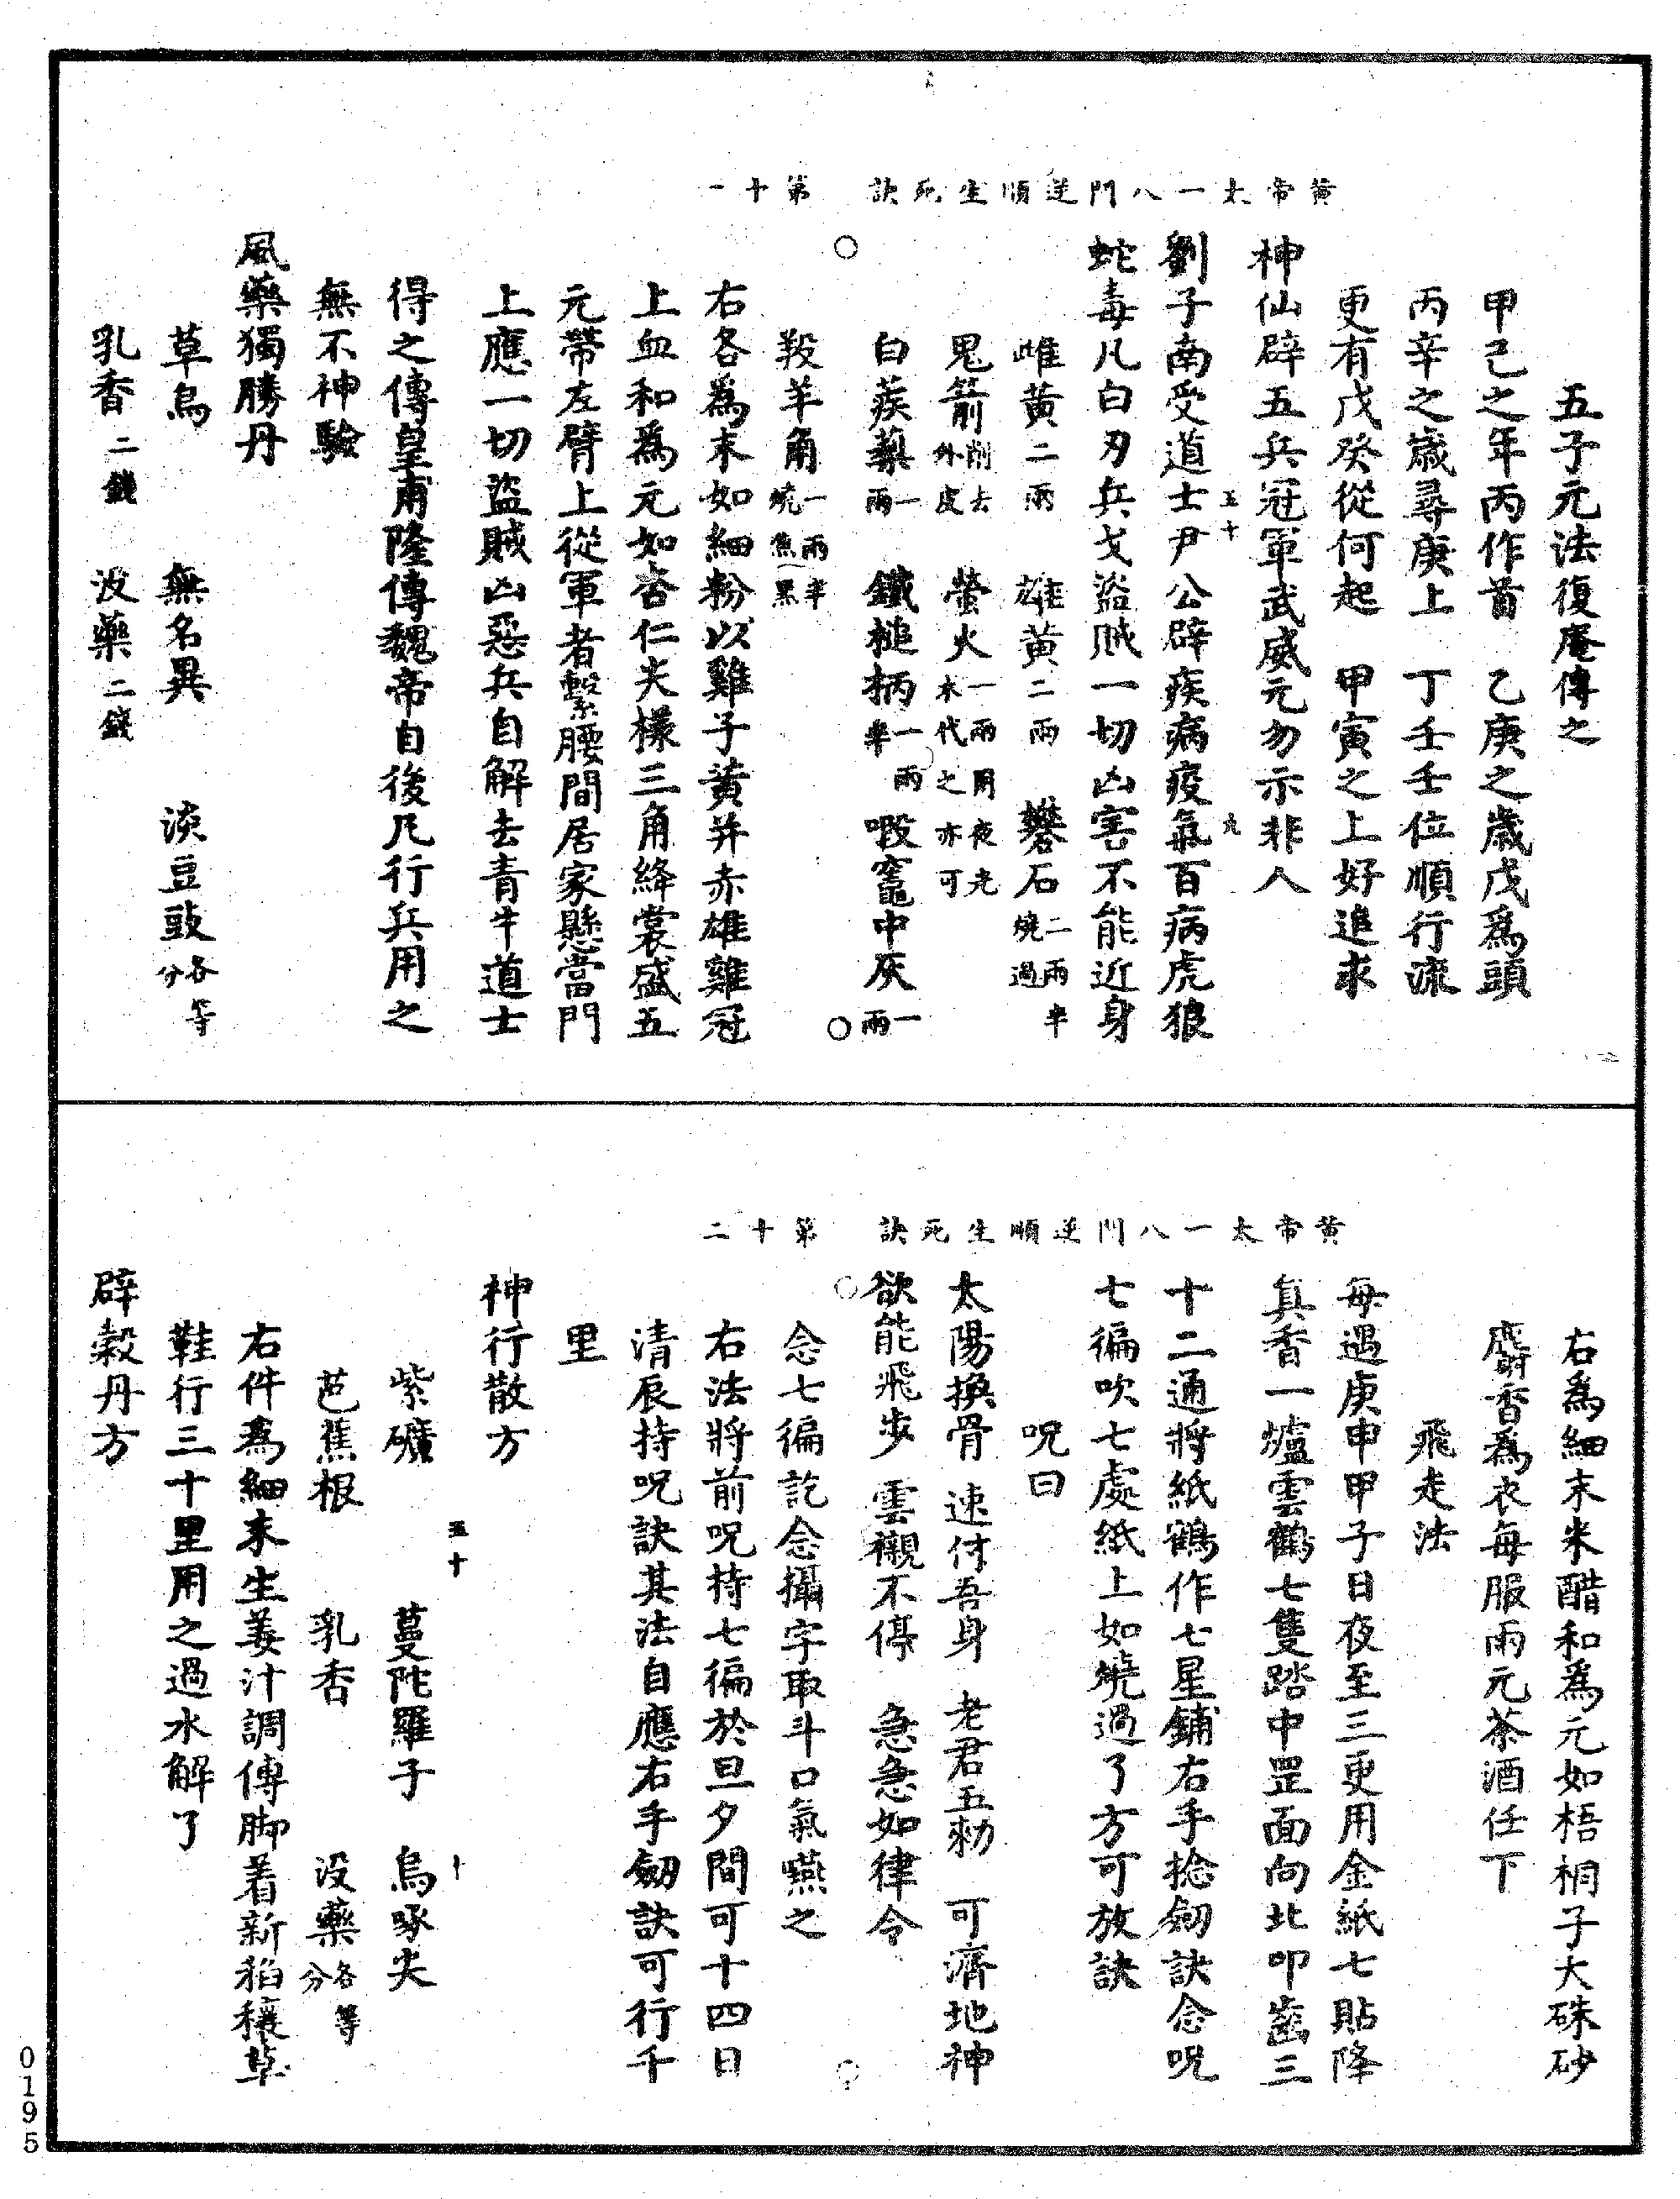 黃帝太一八門逆順生死訣　第十一
五子元法復庵傳之
甲己之年丙作首　乙庚之歲戊為頭
丙辛之歲尋庚上　丁壬壬位順行流
更有戊癸從何起　甲寅之上好追求
神仙辟五兵冠軍武威元勿示非人
五十　九
劉子南受道士尹公辟疾病疫氣百病虎狼
蛇毒凡白刃兵戈盜賊一切凶害不能近身
雌黃二兩　雄黃二兩　礬石二兩半燒過
鬼箭削去外皮　螢火一兩用夜光木代之亦可
白蒺藜一兩　鐵槌柄一兩半　㗇竈中灰一兩
羖羊角一兩半燒焦黑
右各為末如細粉以雞子黃并赤雄雞冠
上血和為元如杏仁尖樣三角絳裳盛五
元帶左臂上從軍者繫腰間居家懸當門
上應一切盜賊凶惡兵自解去青牛道士
得之傳皇甫隆傳魏帝自後凡行兵用之
無不神驗
風藥獨勝丹
草烏　無名異　淡豆豉各等分
乳香二錢　沒藥二錢
黃帝太一八門逆順生死訣　第十二
右為細末米醋和為元如梧桐子大硃砂
麝香為衣每服兩元茶酒任下
飛走法
每遇庚申甲子日夜至三更用金紙七貼降
真香一爐雲鶴七隻踏中罡面向北叩齒三
十二通將紙鶴作七星鋪右手捻劒訣念呪
七徧吹七處紙上如燒過了方可放訣
呪曰
太陽換骨　速付吾身　老君五勑　可濟地神
欲能飛步　雲襯不停　急急如律令
念七徧訖念攝字取斗口氣嚥之
右法將前呪持七徧於旦夕間可十四日
清辰持呪訣其法自應右手劒訣可行千
里
神行散方
五十　十
紫礦　蔓陀羅子　烏啄尖
芭蕉根　乳香　沒藥各等分
右件為細末生姜汁調傅脚着新稻穰草
鞋行三十里用之過水解了
辟榖丹方
0195